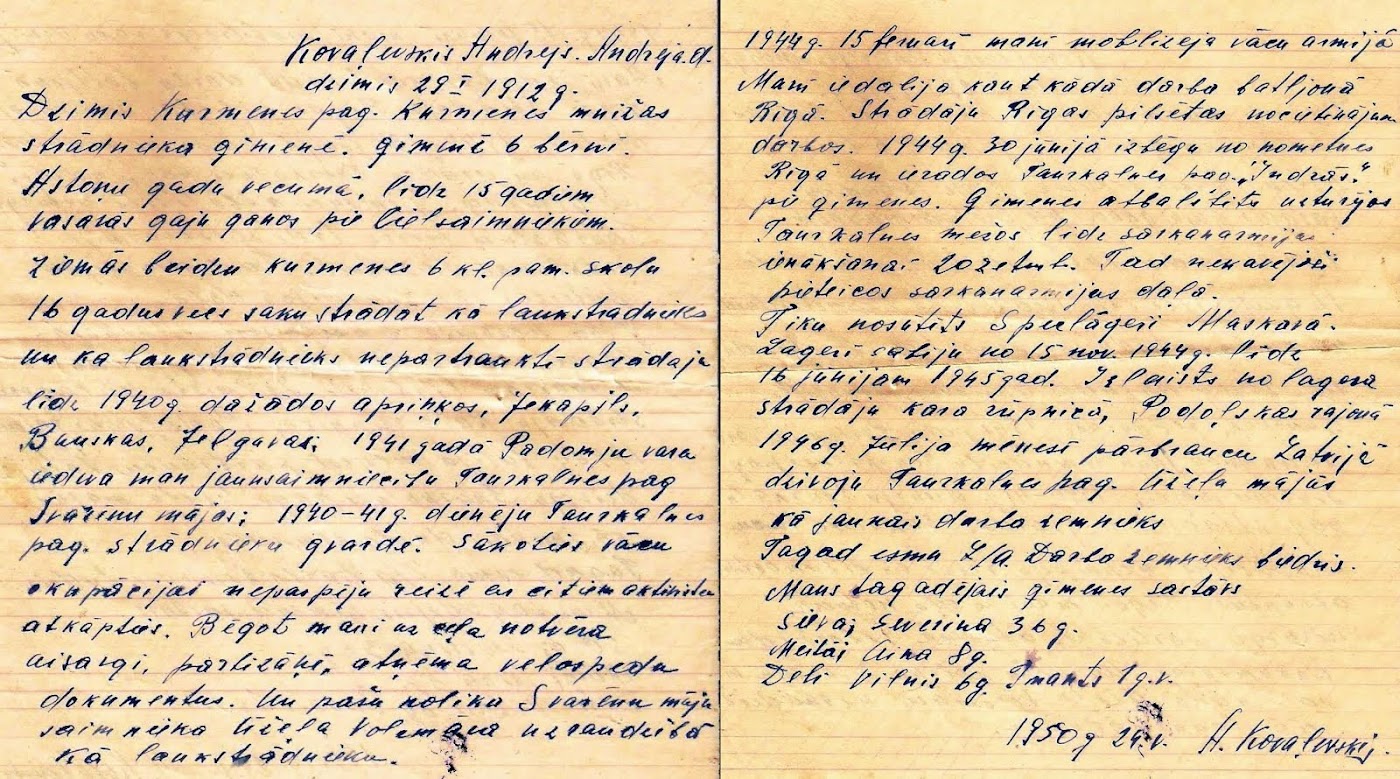 Kovaļevskis Andrejs. Andreja d.
dzimis 29 I 1912 g.
Dzimis Kurmenes pag. Kurmenes muižas
strādnieka ģimenē. Ģimenē 6 bērni.
Astoņu gadu vecumā, līdz 15 gadiem
vasarās gāju ganos pie lielsaimniekiem.
Ziemās beidzu Kurmenes 6 kl. pam. skolu
16 gadus vecs sāku strādāt kā laukstrādnieks
un kā laukstrādnieks nepārtraukti strādāju
līdz 1940 g. dažādos apriņķos, Jēkapils,
Bauskas, Jelgavas; 1941 gadā Padomju vara
iedeva man jaunsaimniecību Taurkalnes pag
Svarēnu mājās; 1940–41 g. dienēju Taurkalnes
pag. strādnieku gvardē. Sākoties vācu
okupācijai nepaspēju reizē ar citiem aktīvistu
atkāpties. Bēgot mani uz ceļa notvēra
aisargi, partizāņi, atņēma velospedu
dokumentus. Un pašu nolika Svarēnu māju
saimnieka Ūšeļa Voldemāra uzraudzībā
kā laukstrādnieku.
1944 g. 15 feruarī mani moblizēja vācu armijā
Mani iedalīja kaut kādā darba batljonā
Rīgā. Strādāju Rīgas pilsētas nocietinājumu
darbos. 1944 g. 30 jūnijā izbēgu no nometnes
Rīgā un ierados Taurkalnes pag. "Indrās."
pie ģimenes. Ģimenes atbalstīts uzturējos
Taurkalnes mežos līdz sarkanarmijas
ienākšanai 20 zetemb. Tad nekavējoši
pieteicos sarkanarmijas daļā.
Tiku nosūtīts Speclāgerī Maskavā.
Lāgerī sabiju no 15 nov. 1944 g. līdz
16 jūnijam 1945 gad. Izlaists no lagera
strādāju kara rūpnīcā, Podoļskas rajonā
1946 g. Jūlija mēnesī pārbraucu Latvijā
dzīvoju Taurkalnes pag. Ūšeļu mājās
kā jaunais darba zemnieks
Tagad esmu L/a. Darba zemnieks biedris.
Mans tagadējais ģimenes sastāvs
sieva; Severina 36 g.
Meitai Aina 8 g.
Dēli Vilnis 6 g. Imants 1 g. v.
1950 g 24. v. A. Kovaļevskis.